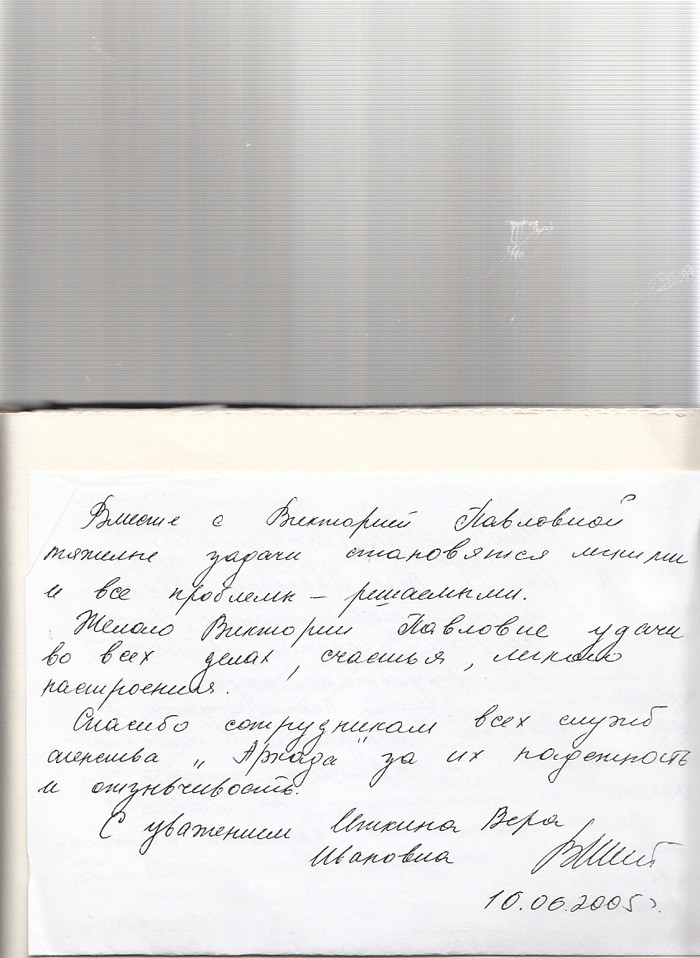 Вместе с Викторией Павловной
тяжелые задачи становятся легкими
и все проблемы – решаемыми.
Желаю Виктории Павловне удачи
во всех делах, счастья, легкого
настроения.
Спасибо сотрудникам всех служб
агенства „Аркада" за их надежность
и отзывчивость.
С уважением Вера
Ивановна
10.06.2005г.